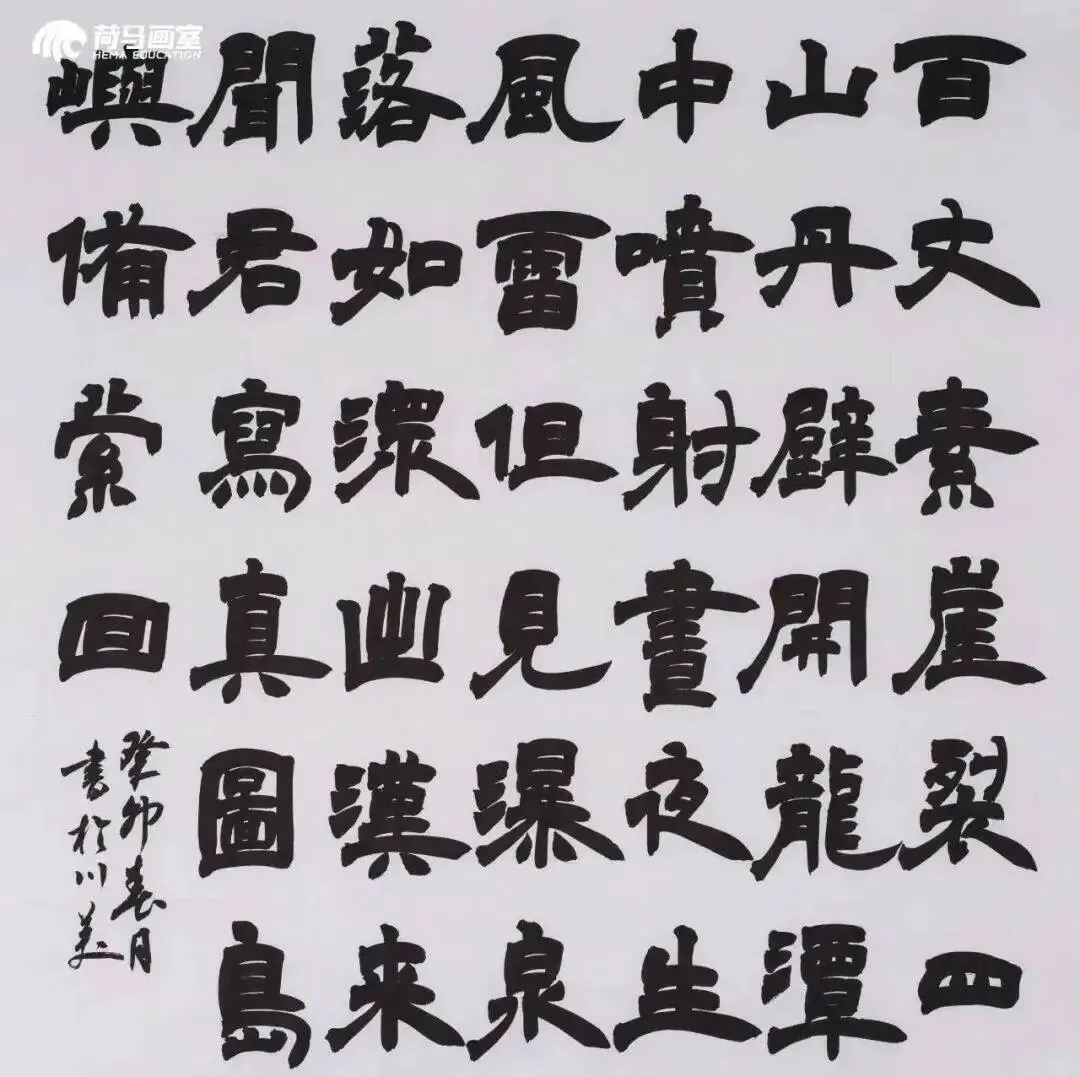 荷马画室
HEMA EDUCATION
百丈素崖裂四
山丹壁開龍潭
中噴射晝夜生
風雷但見瀑泉
落如潨漢來
聞君寫真圖島
嶼備縈回
癸卯春月
書於川美